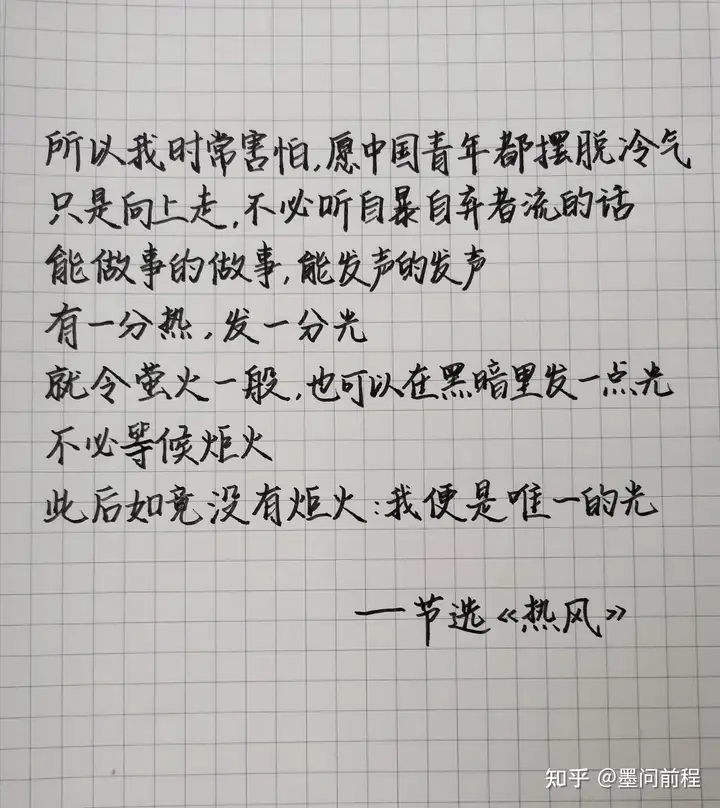 所以我时常害怕,愿中国青年都摆脱冷气
只是向上走,不必听自暴自弃者流的话
能做事的做事,能发声的发声
有一分热,发一分光
就令萤火一般,也可以在黑暗里发一点光
不必等候炬火
此后如竟没有炬火:我便是唯一的光
—节选《热风》
知乎 @墨问前程